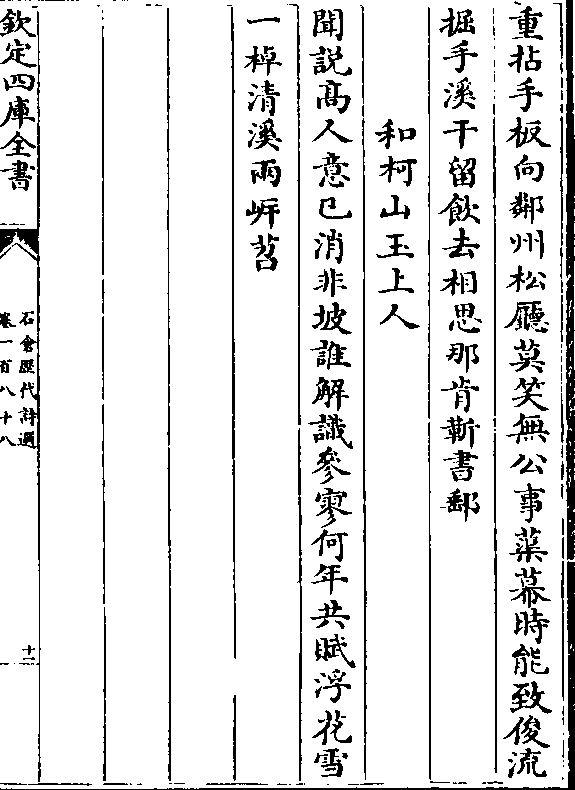 重拈手板向鄰州松廳莫笑無公事蕖幕時能致俊流
掘手溪干留飲去相思那肯靳書郵
和柯山玉上人
聞説髙人意已消非坡誰解識參寥何年共賦浮花雪
一棹清溪兩岍苕
欽定四庫全書
石倉歴代詩選
卷一百八十八
十一